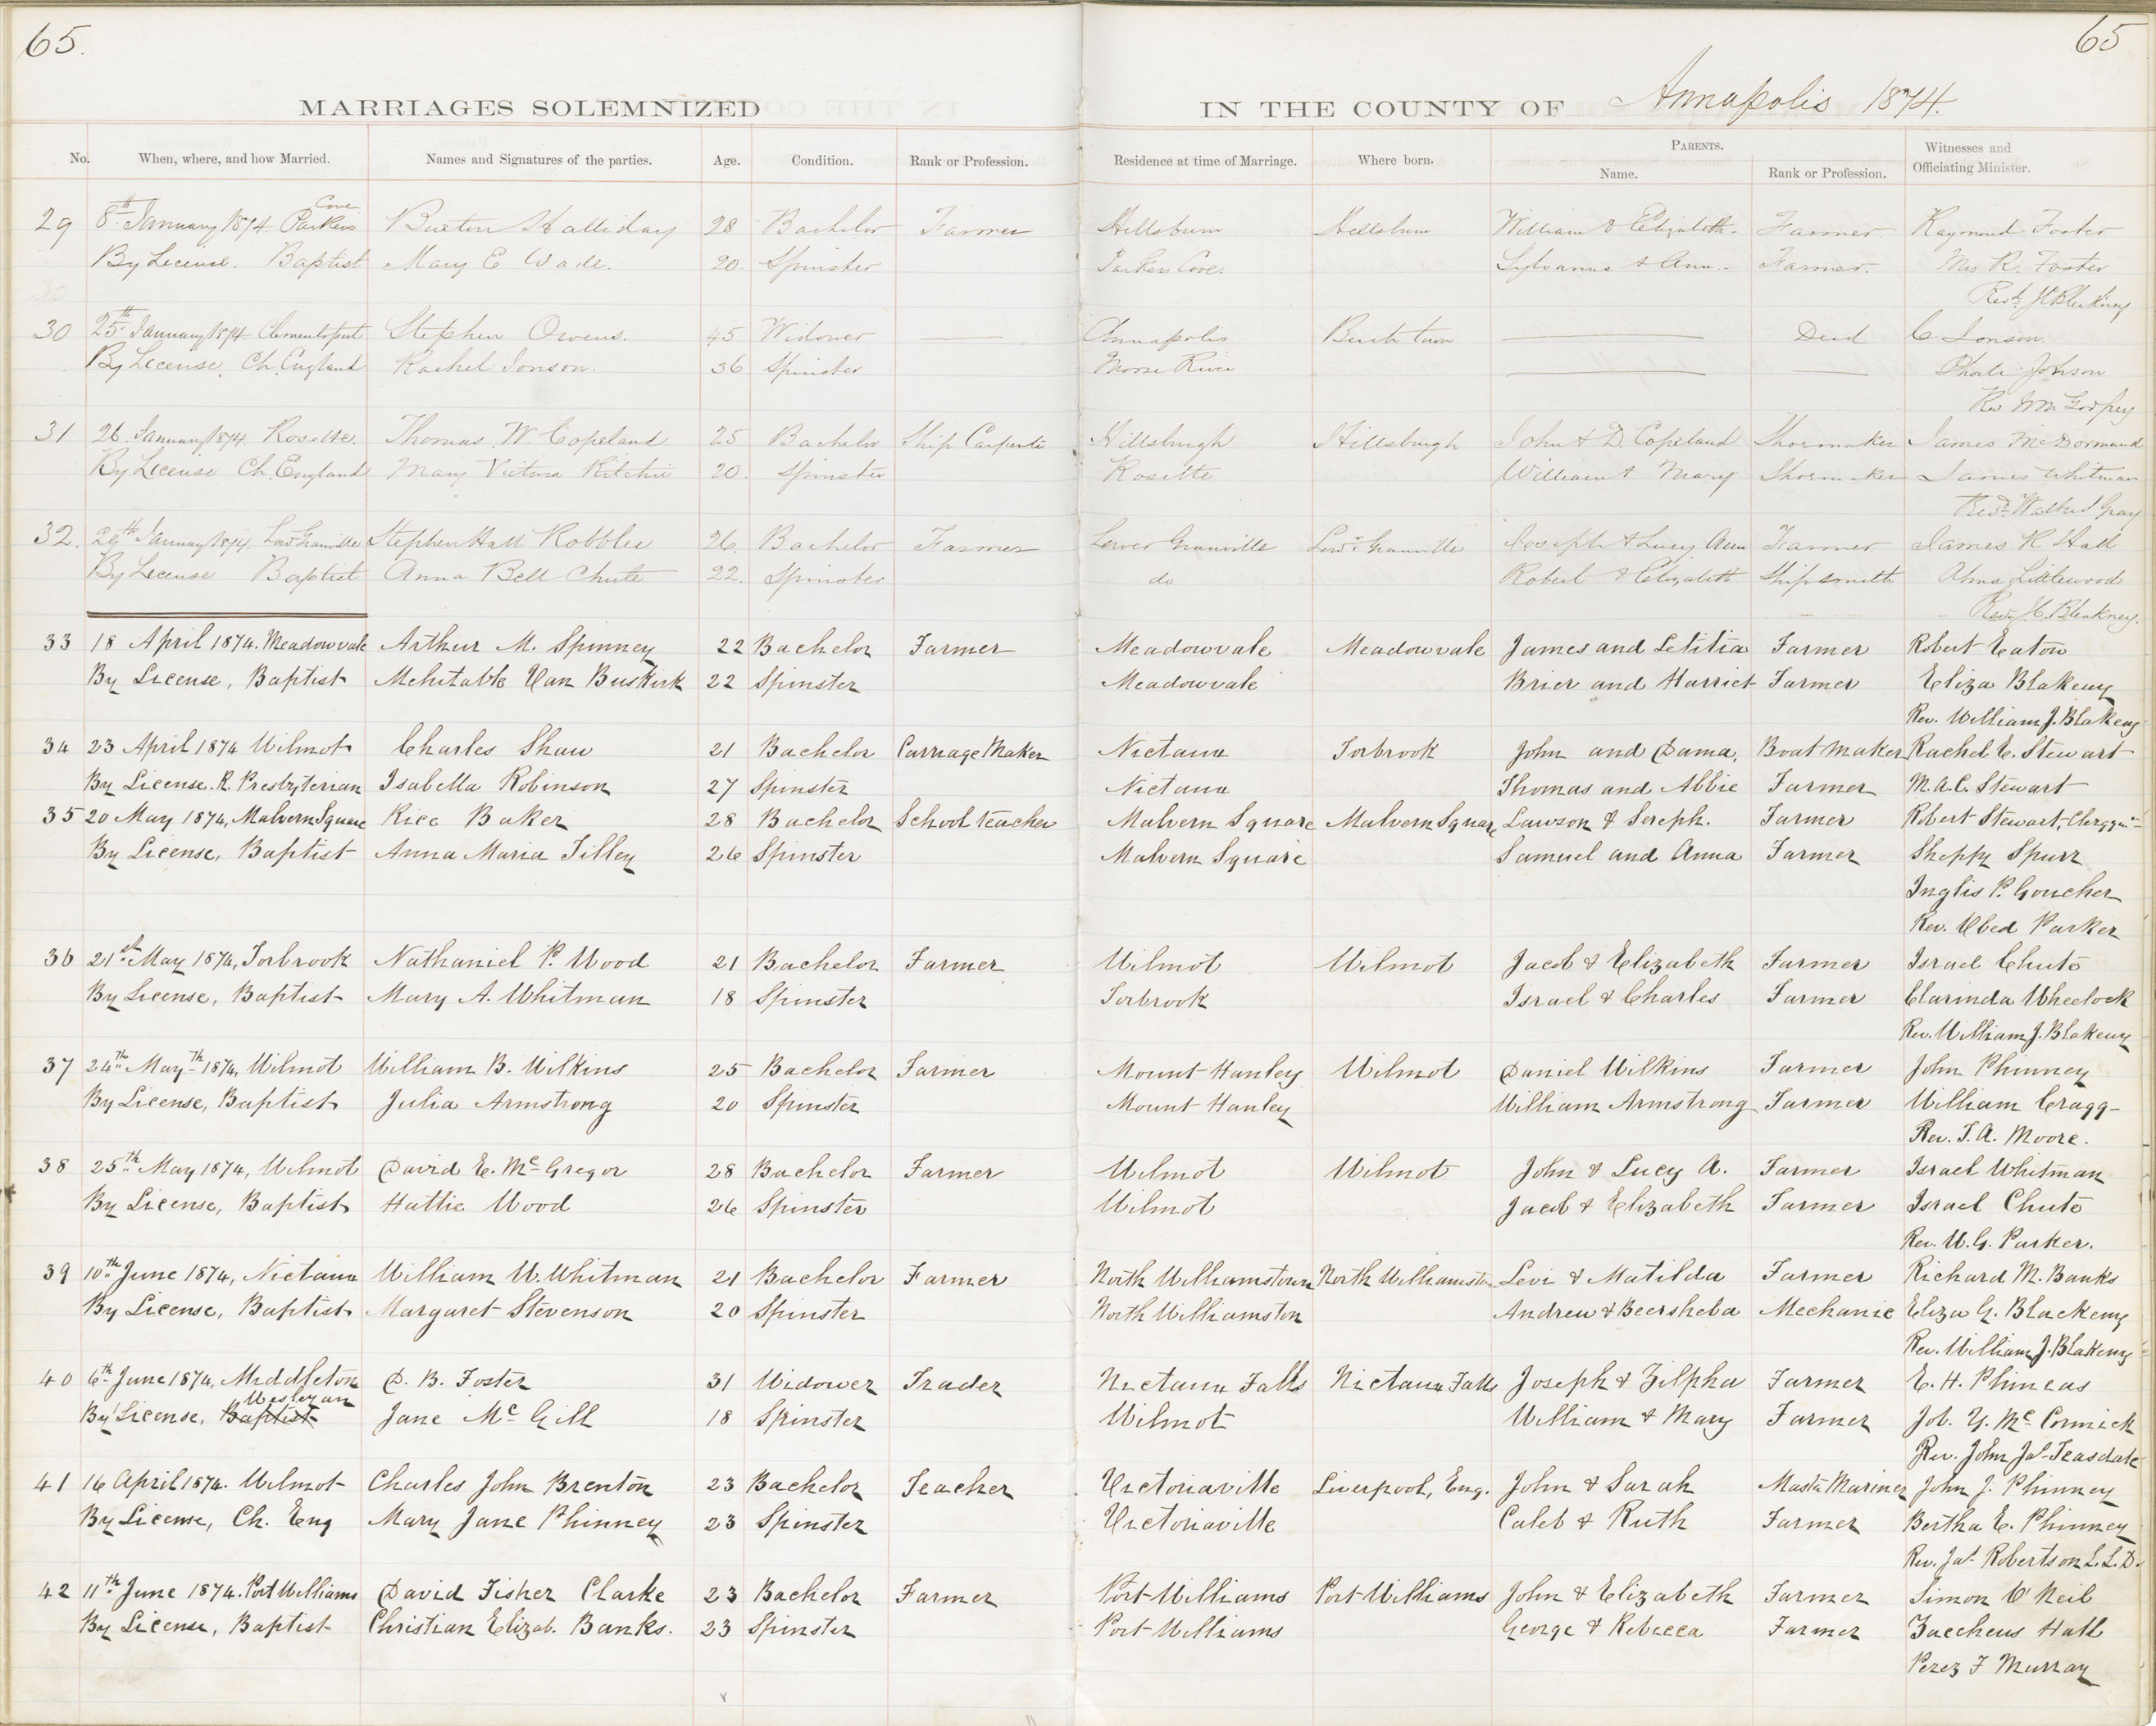 65.
65
MARRIAGES SOLEMNIZED IN THE COUNTY OF Annapolis 1874.
No. When, where, and how Married. Names and Signatures of the parties. Age. Condition. Rank or Profession. Residence at time of Marriage. Where born. PARENTS. Name. Rank or Profession. Witnesses and Officiating Minister.
29 8th January 1874 Parkers Cove Burton Halliday 28 Bachelor Farmer Hillsburn Hillsburn William & Elizabeth Farmer Raymond Foster
By License. Baptist Mary E Wade. 20. Spinster Parkers Cove. Sylvanus & Ann. Farmer. Mrs R. Foster
30 25th January 1874 Clementsport Stephen Owens. 45 Widower Annapolis Dead C Jonson.
By License. Ch. England Rachel Jonson. 36 Spinster Moose River Johson
Rev Wm Godfrey
31 26. January 1874. Rosette. Thomas W. Copeland 25 Bachelor Ship Carpenter Hillsburgh Hillsburgh John & D. Copeland Shoemaker James McDormand
By License Ch. England Mary Victoria Ritchie 20. Spinster Rosette William & Mary Shoemaker James Whitman
Revd. Walter Gray
32. 29th January 1874. Low Granville Stephen Hall Robblee 26. Bachelor Farmer Lower Granville Lowr. Granville Joseph & Lucy Ann Farmer James R Hall
By License Baptist Anna Bell Chute 22. Spinster do Robert & Elizabeth Shipsmith Alma Littlewood
33 18 April 1874. Meadowvale Arthur M. Spinney 22 Bachelor Farmer Meadowvale Meadowvale James and Letitia Farmer Robert Eaton
By License, Baptist Mehitable Van Buskirk 22 Spinster Meadowvale Brier and Harriet Farmer Eliza Blakeny
Rev. William J. Blakeny
34 23 April 1874 Wilmot Charles Shaw 21 Bachelor Carriage Maker Nictaux Torbrook John and Dama, Boat Maker Rachel E. Stewart
By License. R. Presbyterian Isabella Robinson 27 Spinster Nictaux Thomas and Abbie Farmer M. A. C. Stewart
35 20 May 1874, Malvern Square Rice Baker 28 Bachelor School Teacher Malvern Square Malvern Square Lawson & Sereph. Farmer Robert Stewart, Clergyn
By License, Baptist Anna Maria Tilley 26 Spinster Malvern Square Samuel and Anna Farmer Sheppy Spurr
Inglis P. Goucher
Rev. Obed Parker
36 21st May 1874, Torbrook Nathaniel P. Wood 21 Bachelor Farmer Wilmot Wilmot Jacob & Elizabeth Farmer Israel Chute
By License, Baptist Mary A. Whitman 18 Spinster Torbrook Israel & Charles Farmer Clarinda Wheelock
Rev. William J. Blakeny
37 24th May th 1874, Wilmot William B. Wilkins 25 Bachelor Farmer Mount Hanley Wilmot Daniel Wilkins Farmer John Phinney
By License, Baptist Julia Armstrong 20 Spinster Mount Hanley William Armstrong Farmer William Cragg
Rev. T. A. Moore.
38 25th May 1874, Wilmot David E. McGregor 28 Bachelor Farmer Wilmot Wilmot John & Lucy A. Farmer Israel Whitman
By License, Baptist Hattie Wood 26 Spinster Wilmot Jacob & Elizabeth Farmer Israel Chute
Rev. W. G. Parker.
39 10th June 1874, Nictaux William W. Whitman 21 Bachelor Farmer North Williamstown North Williamston Levi & Matilda Farmer Richard M. Banks
By License, Baptist Margaret Stevenson 20 Spinster North Williamston Andrew & Beersheba Mechanic Eliza G. Blackeny
Rev. William J. Blakeny
40 6th June 1874, Middleton D. B. Foster 31 Widower Trader Nictaux Falls Nictaux Falls Joseph & Zilpha Farmer E. H. Phineas
By License, Baptist Wesleyan Jane McGill 18 Spinster Wilmot William & Mary Farmer Job. Y. McCormick
Rev. John Jas. Teasdale
41 16 April 1874. Wilmot Charles John Brenton 23 Bachelor Teacher Victoriaville Liverpool, Eng. John & Sarah Master Mariner John J. Phinney
By License, Ch. Eng Mary Jane Phinney 23 Spinster Victoriaville Caleb & Ruth Farmer Bertha E. Phinney
Rev. Jas. Robertson L.L.D.
42 11th June 1874. Port Williams David Fisher Clarke 23 Bachelor Farmer Port Williams Port Williams John & Elizabeth Farmer Simon O'Neil
By License, Baptist Christian Elizab. Banks. 23 Spinster Port Williams George & Rebecca Farmer Zaccheus Hall
Perez F Murray